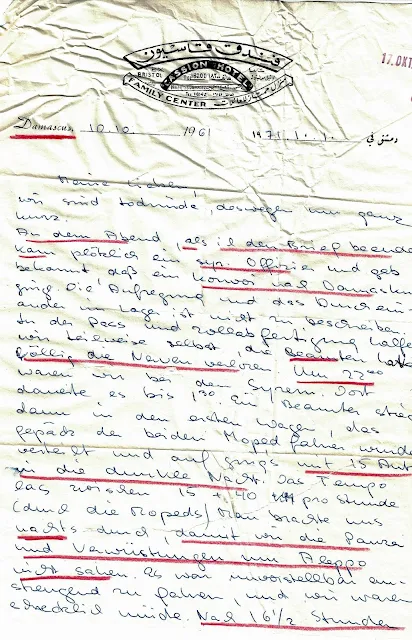 فندق قاسيون
BRISTOL
KASSION HOTEL
FAMILY CENTER
17. OKT
Damascus, 10.10. 1961
دمشق في ١٠.١٠. ١٩٦١
Meine Lieben!
wir sind todmüde, deswegen nur ganz
kurz.
An dem Abend, als ich den Brief beende
kam plötzlich ein syr. Offizier und gab
bekannt daß ein Konvoi nach Damaskus
ging. Die Aufregung und das Durchein-
ander im Lager ist nicht zu beschreiben.
In der Pass und Zollabfertigung halfen
wir teilweise selbst, die Beamten hatten
völlig die Nerven verloren. Um 22⁰⁰
waren wir bei den Syrern. Dort
dauerte es bis 1³⁰. Ein Beamter stieg
dann in den ersten Wagen, das
gepäck der beiden Mopedfahrer wurde
verteilt und auf gings mit 15 Autos
in die dunkle Nacht. Das Tempo
lag zwischen 15 + 40 km pro Stunde
(durch die Mopeds) Man brachte uns
nachts durch, damit wir die Panzer
und Verwüstungen um Aleppo
nicht sahen. Es war unvorstellbar an-
strengend zu fahren, und wir waren
schrecklich müde. Nach 6 1/2 Stunden